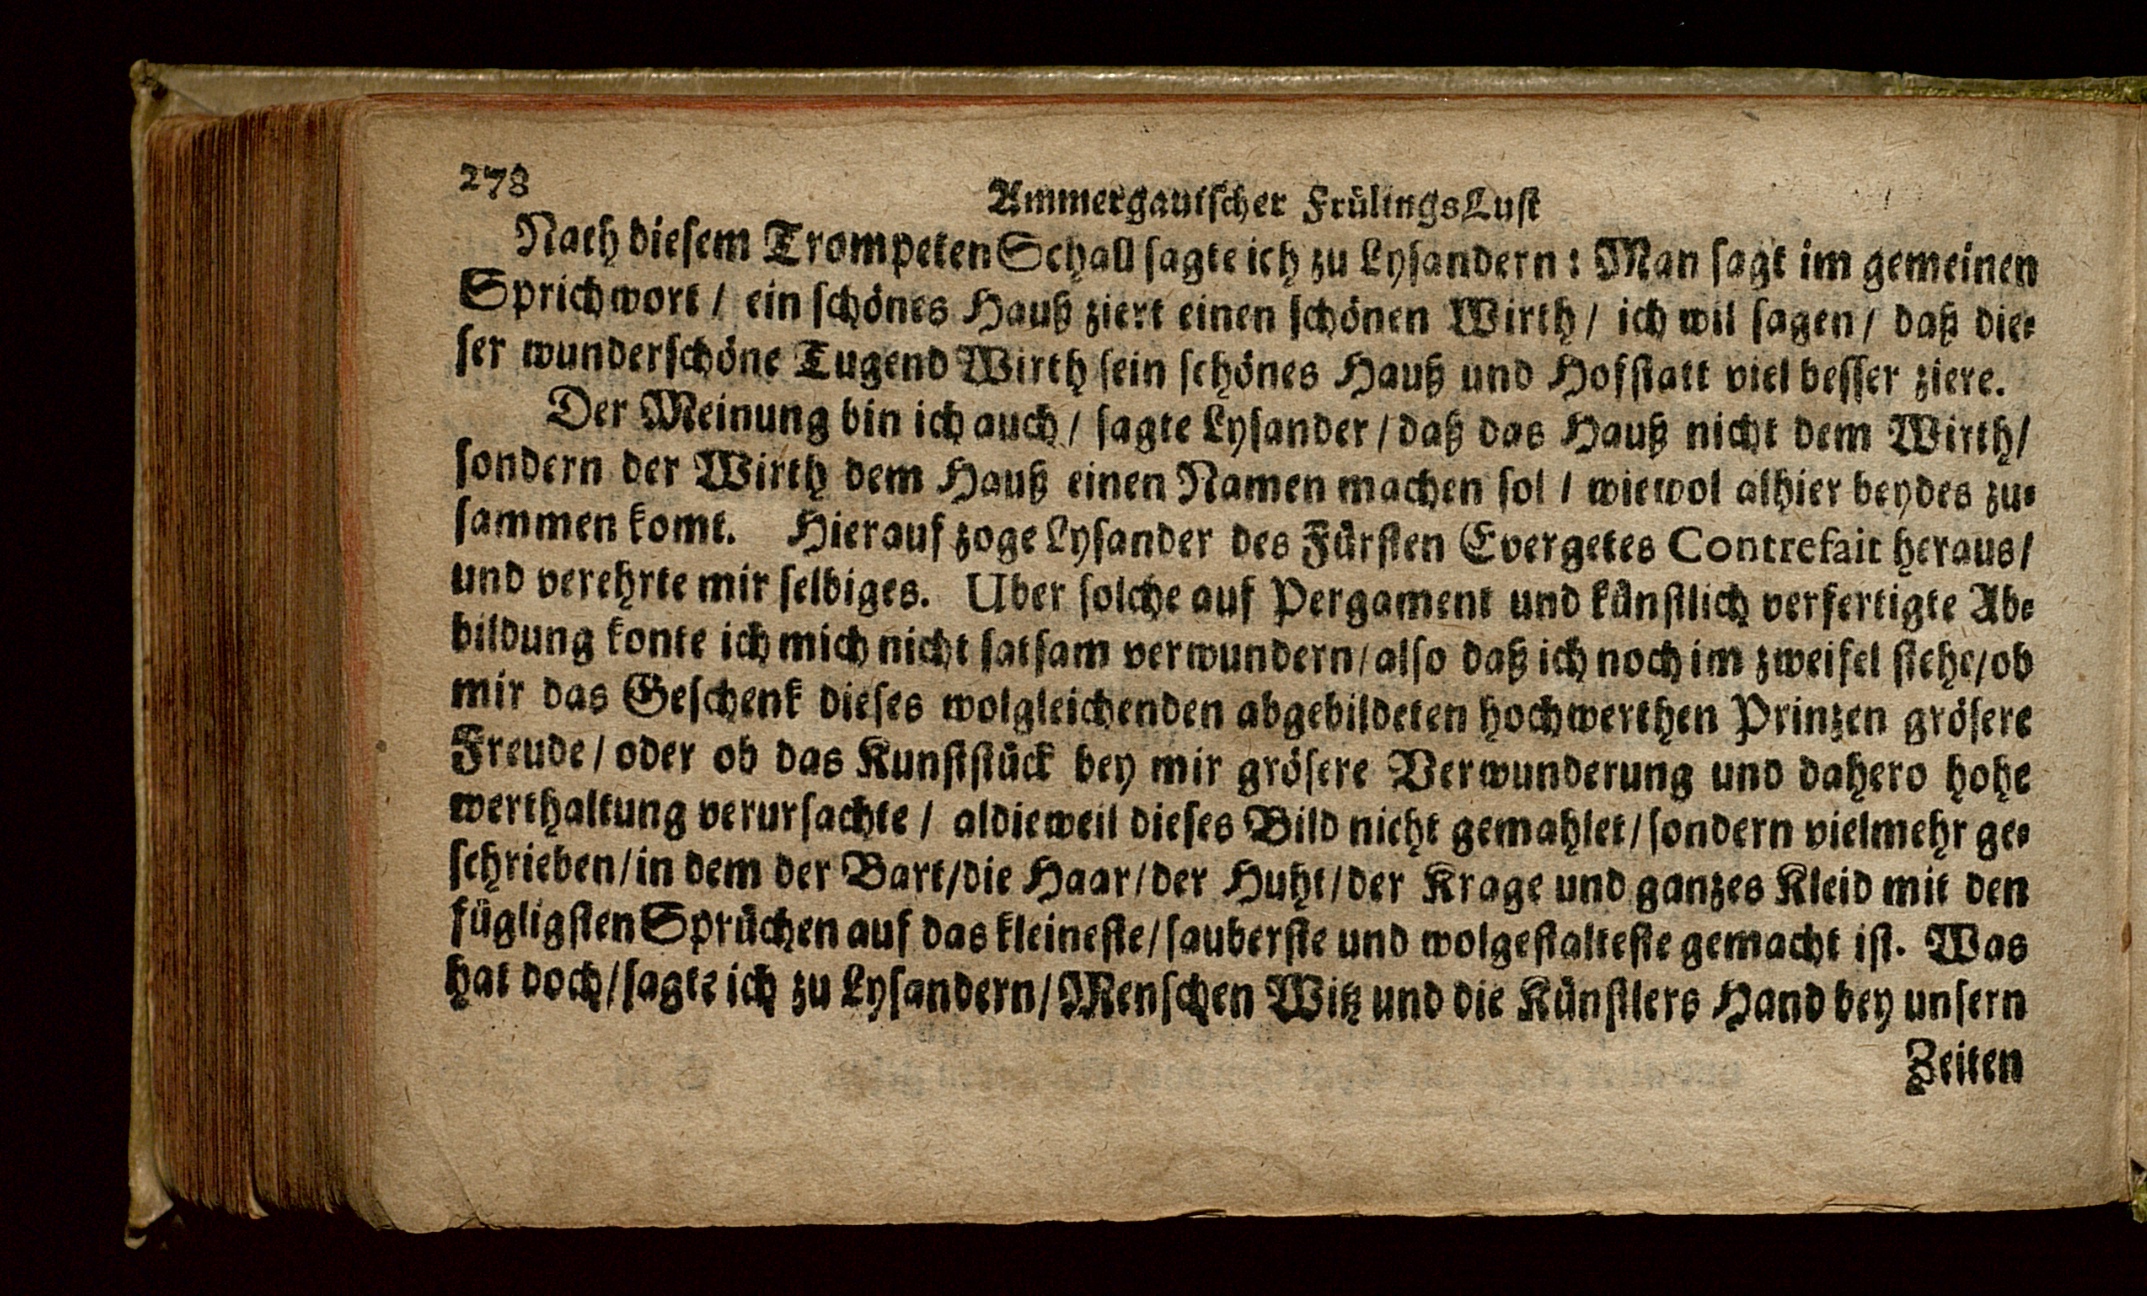 278
Ammergauischer FrülingsLust
Nach diesem TrompetenSchall sagte ich zu Lysandern: Man sagt im gemeinen
Sprichwort / ein schönes Hauß ziert einen schönen Wirth / ich wil sagen / daß die-
ser wunderschöne Tugend Wirth sein schönes Hauß und Hofstatt viel besser ziere.
Der Meinung bin ich auch / sagte Lysander / daß das Hauß nicht dem Wirth /
sondern der Wirth dem Hauß einen Namen machen sol / wiewol alhier beydes zu-
sammen komt. Hierauf zoge Lysander des Fürsten Evergetes Contrefait heraus /
und verehrte mir selbiges. Uber solche auf Pergament und künstlich verfertigte Ab-
bildung konte ich mich nicht satsam verwundern / also daß ich noch im zweifel stehe / ob
mir das Geschenk dieses wolgleichenden abgebildeten hochwerthen Prinzen grösere
Freude / oder ob das Kunststück bey mir grösere Verwunderung und dahero hohe
werthaltung verursachte / aldieweil dieses Bild nicht gemahlet / sondern vielmehr ge-
schrieben / in dem der Bart / die Haar / der Huht / der Krage und ganzes Kleid mit den
fügligsten Sprüchen auf das kleineste / sauberste und wolgestalteste gemacht ist. Was
hat doch / sagte ich zu Lysandern / Menschen Witz und die Künstlers Hand bey unsern
Zeiten